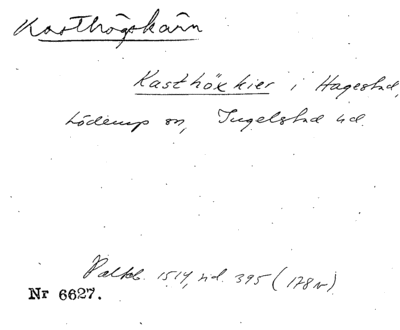 Kasthögskärn
Kasthöx kier i Hagestad,
Löderup sn, Ingelstad hd.
Paltb. 1514, sid. 395 (178v)
Nr 6627.